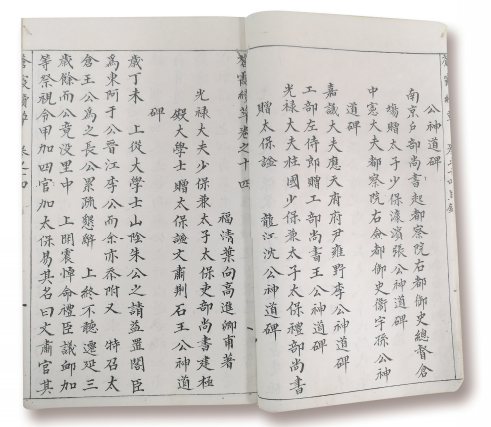 公神道碑
南京户部尚書起都察院右都御史總督倉
場贈太子少保滾濱張公神道碑
中憲大夫都察院右僉都御史衢宇孫公神
道碑
嘉議大夫應天府府尹雍野李公神道碑
工部左侍郎贈工部尚書王公神道碑
光禄大夫柱國少保兼太子太保禮部尚書
贈太保諡 龍江沈公神道碑
蒼霞續草卷之十四
福清葉向高進卿甫著
光禄大夫少保兼太子太保吏部尚書建極
殿大學士贈太保諡文肅荊石王公神道
碑
歲丁未 上從大學士山陰朱公之請益置閣臣
為東阿于公晉江李公而余亦忝附又 特召太
倉王公為之長公累疏懇辭 上終不聽遷延三
歲餘而公竟沒里中 上聞震悼命禮臣議卹加
等祭視令甲加四官加太保易其名曰文肅官其
蒼霞續草 卷之十四